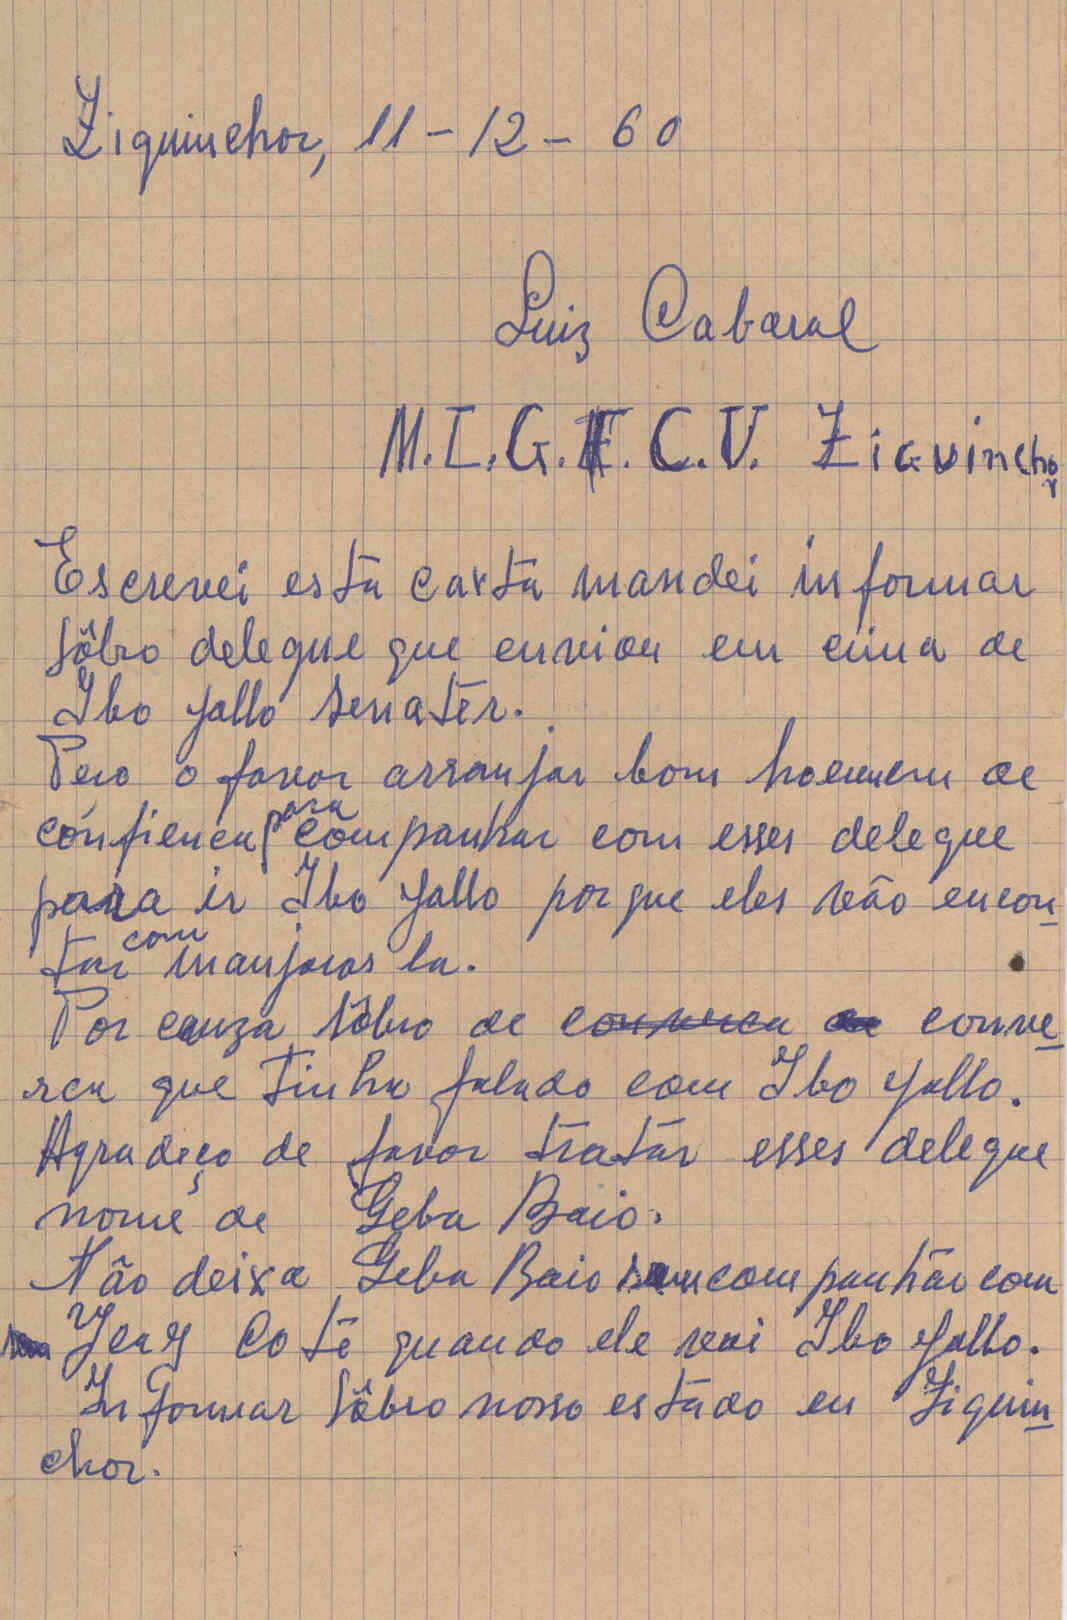 Ziguinchor, 11 - 12 - 60
Luiz Cabaral
M.L.G.E.C.V. Ziguinchor
Escrevei esta carta mandei informar
sôbro delegue que enviou em cima de
Ibo yallo senatér.
Peço o favor arranjar bom hoemem de
confienca para companhar com esses delegue
para ir Ibo yallo porque eles vão encon-
tar com manjacos la.
Por cauza sôbro de conve-
rca que tinha falado com Ibo yallo.
Agradeço de favor tratar esses delegue
nome de Geba Baio.
Não deixa Geba Baio companhão com
Jeay Coté quando ele vai Ibo yallo.
Informar sôbro nosso estado en Ziguin-
chor.